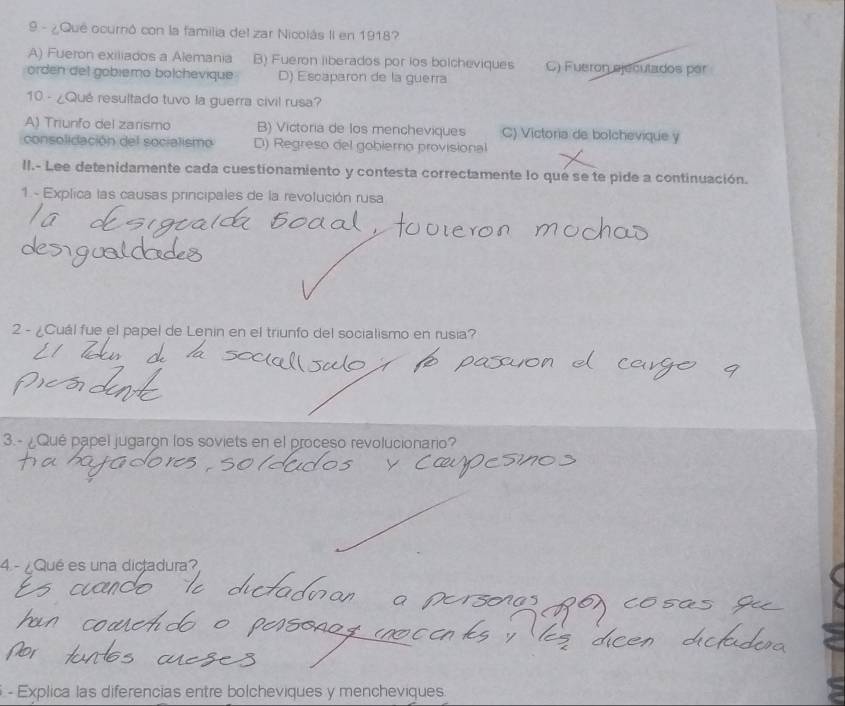 9 - ¿Qué ocurrió con la familia del zar Nicolás II en 1918?
A) Fueron exiliados a Alemania B) Fueron liberados por los bolcheviques C) Fueron ejecutados por
orden del gobierno bolchevique D) Escaparon de la guerra
10 - ¿Qué resultado tuvo la guerra civil rusa?
A) Triunfo del zarismo B) Victoria de los mencheviques C) Victoria de bolchevique y
consolidación del socialismo D) Regreso del gobierno provisional
II.- Lee detenidamente cada cuestionamiento y contesta correctamente lo que se te pide a continuación.
1.- Explica las causas principales de la revolución rusa
la desigualda social, tovieron mochas
desigualdades
2 - ¿Cuál fue el papel de Lenin en el triunfo del socialismo en rusia?
El líder de la y lo pasaron el cargo a
presidente
3.- ¿Qué papel jugaron los soviets en el proceso revolucionario?
trabajadores, soldados y campesinos
4.- ¿Qué es una dictadura?
Es cuando lo a personas por cosas que
han cometido o personas inocentes y les dicen dictadora
Por tantos
5.- Explica las diferencias entre bolcheviques y mencheviques.